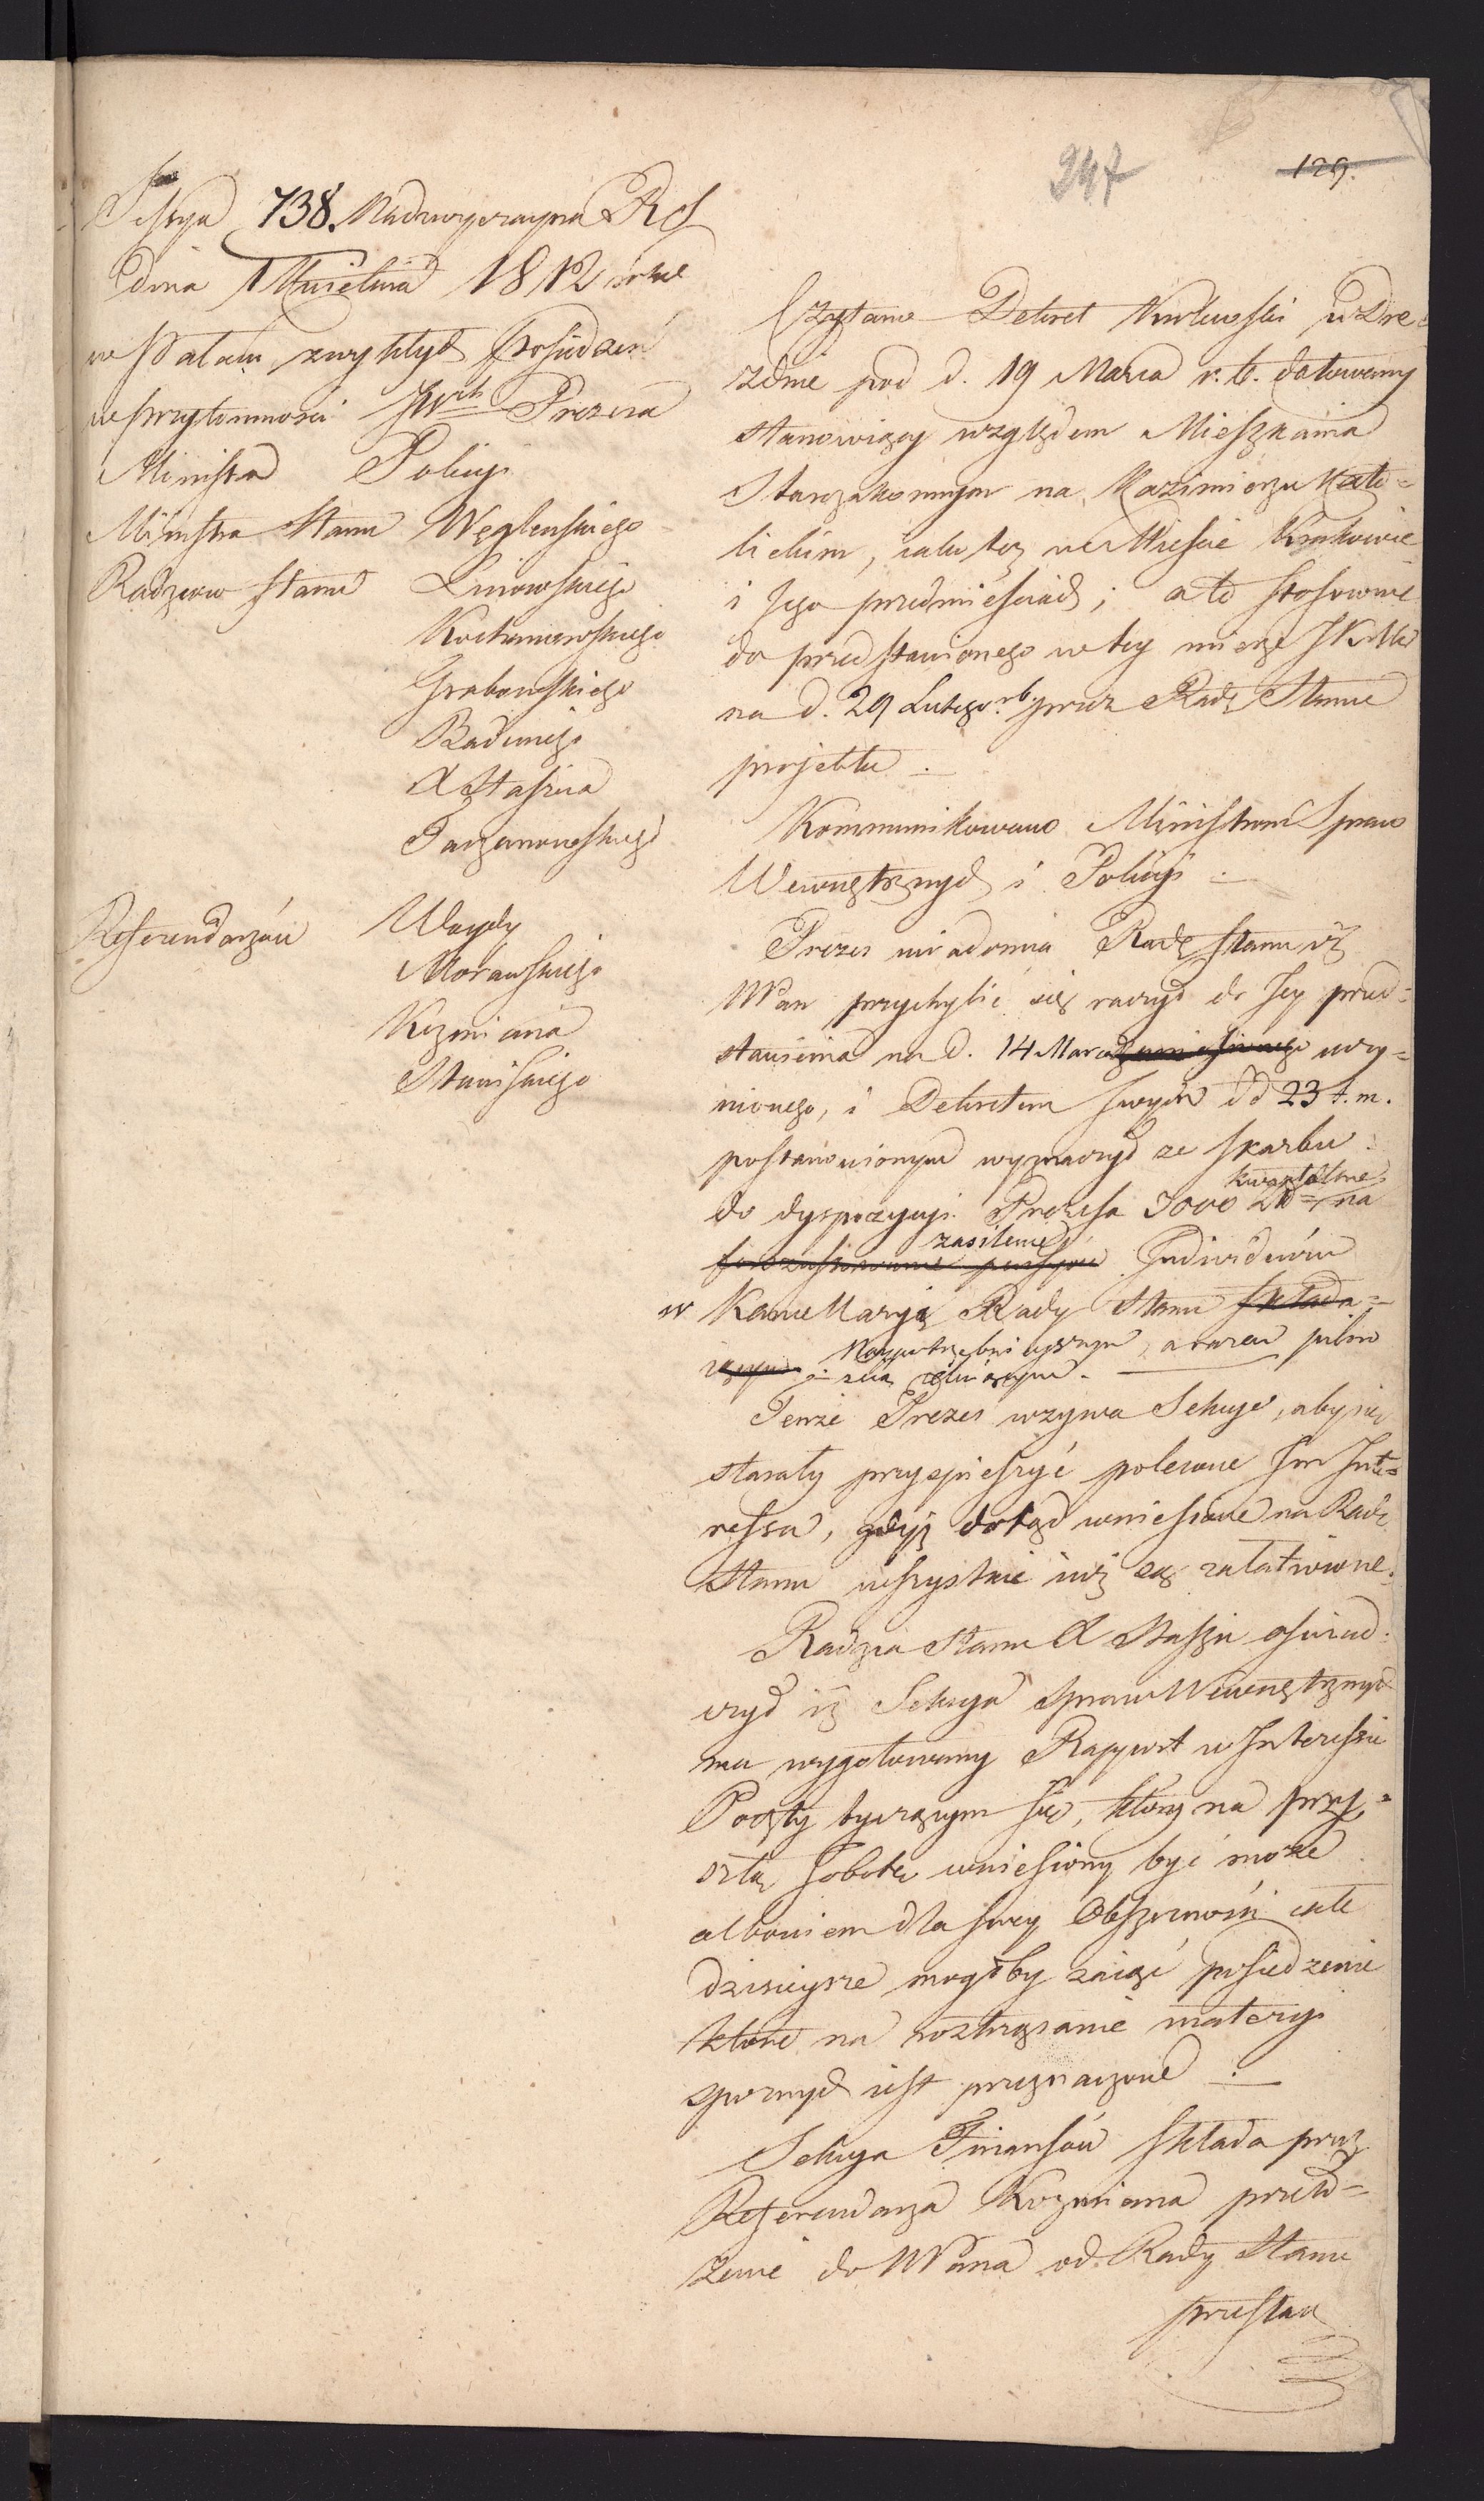 247
129.
Sessya 738. Nadzwyczayna RS
dnia 1 Kwietnia 1812 roku
w Pałacu zwykłych posiedzeń
w przytomności JWch Prezesa
Ministra Policyi
Ministra Stanu Węglenskiego
Radzcow Stanu Linowskiego
Kochanowskiego
Grabowskiego
Badeniego
X Staszica
Tarzanowskiego
Referendarzów Woydy
Morawskiego
Kozmiana
Stawiskiego
Czytano Dekret Krolewski w Dre
zdnie pod d. 19 Marca r. b. datowany
stanowiący względem Mieszkania
Starozakonnym na Kazimierzu Kato=
lickim, iako też w Mieście Krakowie
i Jego przedmieściach; a to stosownie
do przedstawionego w tey mierze JKMci
na d. 29 Lutego rb. przez Radę Stanu
projektu .
Kommunikowano Ministrom Spraw
Wewnętrznych i Policyi .
Prezes uwiadomia Radę Stanu iż
NPan przychylić się raczył do Jey przed=
stawienia na d. 14 Marca uczy=
nionego, i Dekretem swym dd 23 t. m.
postanowionym wyznaczył ze skarbu
do dyspozycyi Prezesa 3000 Zł= kwartalnie na
zasilenie Individuów
w Kancellaryi Rady Stanu składa=
iących Naypotrzebnieyszym, a razem pilno
scią celuiącym.
Tenże Prezes wzywa Sekcye, aby się
starały przyspieszyć polecone Im Inte=
ressa, gdyż dotąd wniesione na Radę
Stanu wszystkie iuż są załatwione.
Radzca Stanu X Staszic oświad=
czył iż Sekcya Spraw Wewnętrznych
ma wygotowany Rapport w Interessie
Poczty tyczącym się, który na przy=
szłą Sobotę wniesiony być może
albowiem dla swey Obszerności całe
dzisieysze mogłby zaiąć posiedzenie
które na roztrząsanie materyi
spornych iest przeznaczone .
Sekcya Finansów składa przez
Referendarza Kozmiana przeło=
żenie do NPana od Rady Stanu
przesłan